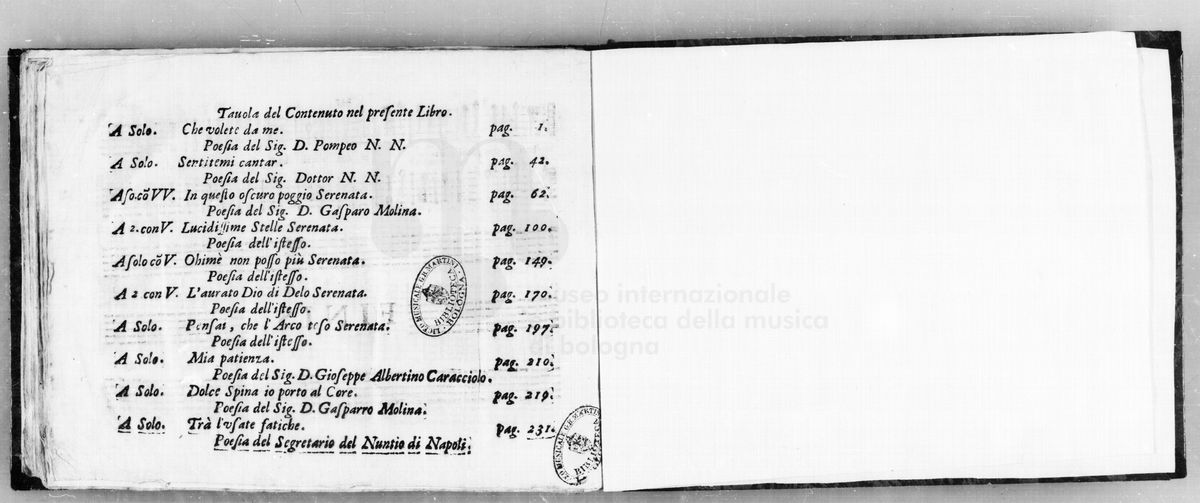 Tauola del Contenuto nel preſente Libro.
A Solo. Che volete da me. pag. 1.
Poeſia del Sig. D. Pompeo N. N.
A Solo. Sentitemi cantar. pag. 42.
Poeſia del Sig. Dottor N. N.
A ſo.cõ VV. In queſto oſcuro poggio Serenata. pag. 62.
Poeſia del Sig. D. Gaſparo Molina.
A 2. con V. Lucidiſſime Stelle Serenata. pag. 100.
Poeſia dell'iſteſſo.
A ſolo cõ V. Ohimè non poſſo più Serenata. pag. 149.
Poeſia dell'iſteſſo.
A 2 con V. L'aurato Dio di Delo Serenata. pag. 170.
Poeſia dell'iſteſſo.
A Solo. Penſai, che l'Arco teſo Serenata. pag. 197.
Poeſia dell'iſteſſo.
A Solo. Mia patienza. pag. 210.
Poeſia del Sig. D. Gioſeppe Albertino Caracciolo.
A Solo. Dolce Spina io porto al Core. pag. 219.
Poeſia del Sig. D. Gaſparro Molina.
A Solo. Trà l'vſate fatiche. pag. 231.
Poeſia del Segretario del Nuntio di Napoli.
LICEO MUSICALE G.B. MARTINI BOLOGNA
BIBLIOTECA
LICEO MUSICALE G.B. MARTINI
BIBLIOTECA
museo internazionale
e biblioteca della musica
di bologna